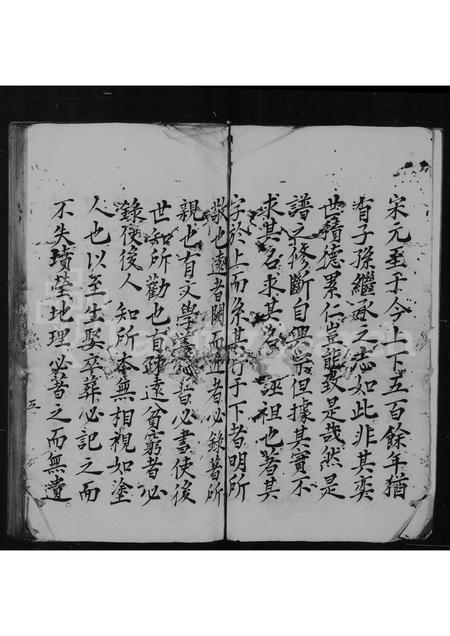 宋元至于今上下五百餘年猶
有子孫繼承之志如此非其奕
世積德累仁豈能致是哉然是
譜之修斷自興宗但據其實不
求其名求其名誣祖也著其
字於上而系其行于下者明所
敬也遠者闕而近者必錄者所
親也有文學善者必書使後
世知所勸也有疎遠貧窮者必
錄使後人知所本無相視如塗
人也以至生娶卒葬必記之而
不失墳塋地理必著之而無遺
五